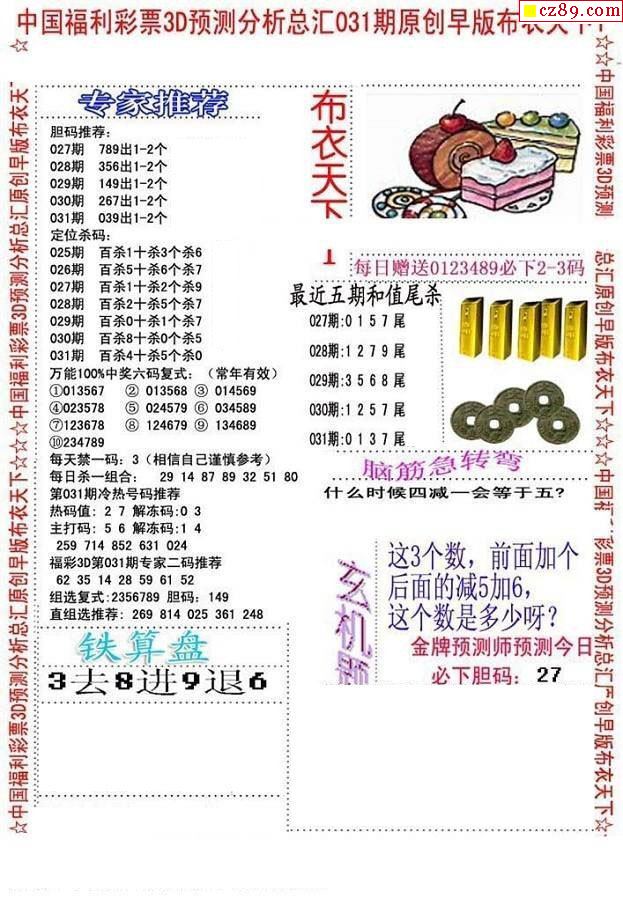 cz89.com
中国福利彩票3D预测分析总汇031期原创早版布衣天下
专家推荐
胆码推荐：
027期 789出1-2个
028期 356出1-2个
029期 149出1-2个
030期 267出1-2个
031期 039出1-2个
定位杀码：
025期 百杀1十杀3个杀6
026期 百杀5十杀6个杀7
027期 百杀1十杀2个杀9
028期 百杀2十杀5个杀7
029期 百杀0十杀1个杀7
030期 百杀8十杀0个杀5
031期 百杀4十杀5个杀0
万能100%中奖六码复式：（常年有效）
①013567 ② 013568 ③ 014569
④023578 ⑤ 024579 ⑥ 034589
⑦123678 ⑧ 124679 ⑨ 134689
⑩234789
每天禁一码：3（相信自己谨慎参考）
每日杀一组合： 29 14 87 89 32 51 80
第031期冷热号码推荐
热码值：2 7 解冻码:0 3
主打码：5 6 解冻码:1 4
259 714 852 631 024
福彩3D第031期专家二码推荐
62 35 14 28 59 61 52
组选复式:2356789 胆码：149
直组选推荐：269 814 025 361 248
铁算盘
3去8进9退6
布衣天下
每日赠送0123489必下2-3码
最近五期和值尾杀
027期:0 1 5 7 尾
028期:1 2 7 9 尾
029期:3 5 6 8 尾
030期:1 2 5 7 尾
031期:0 1 3 7 尾
脑筋急转弯
什么时候四减一会等于五？
玄机题
这3个数，前面加个
后面的减5加6，
这个数是多少呀？
金牌预测师预测今日
必下胆码： 27
☆中国福利彩票3D预测分析总汇原创早版布衣天下☆☆☆中国福利彩票3D预测分析总汇原创早版布衣天☆
☆☆中国福利彩票3D预测
总汇原创早版布衣天下☆☆☆中国福
彩票3D预测分析总汇
创早版布衣天下☆